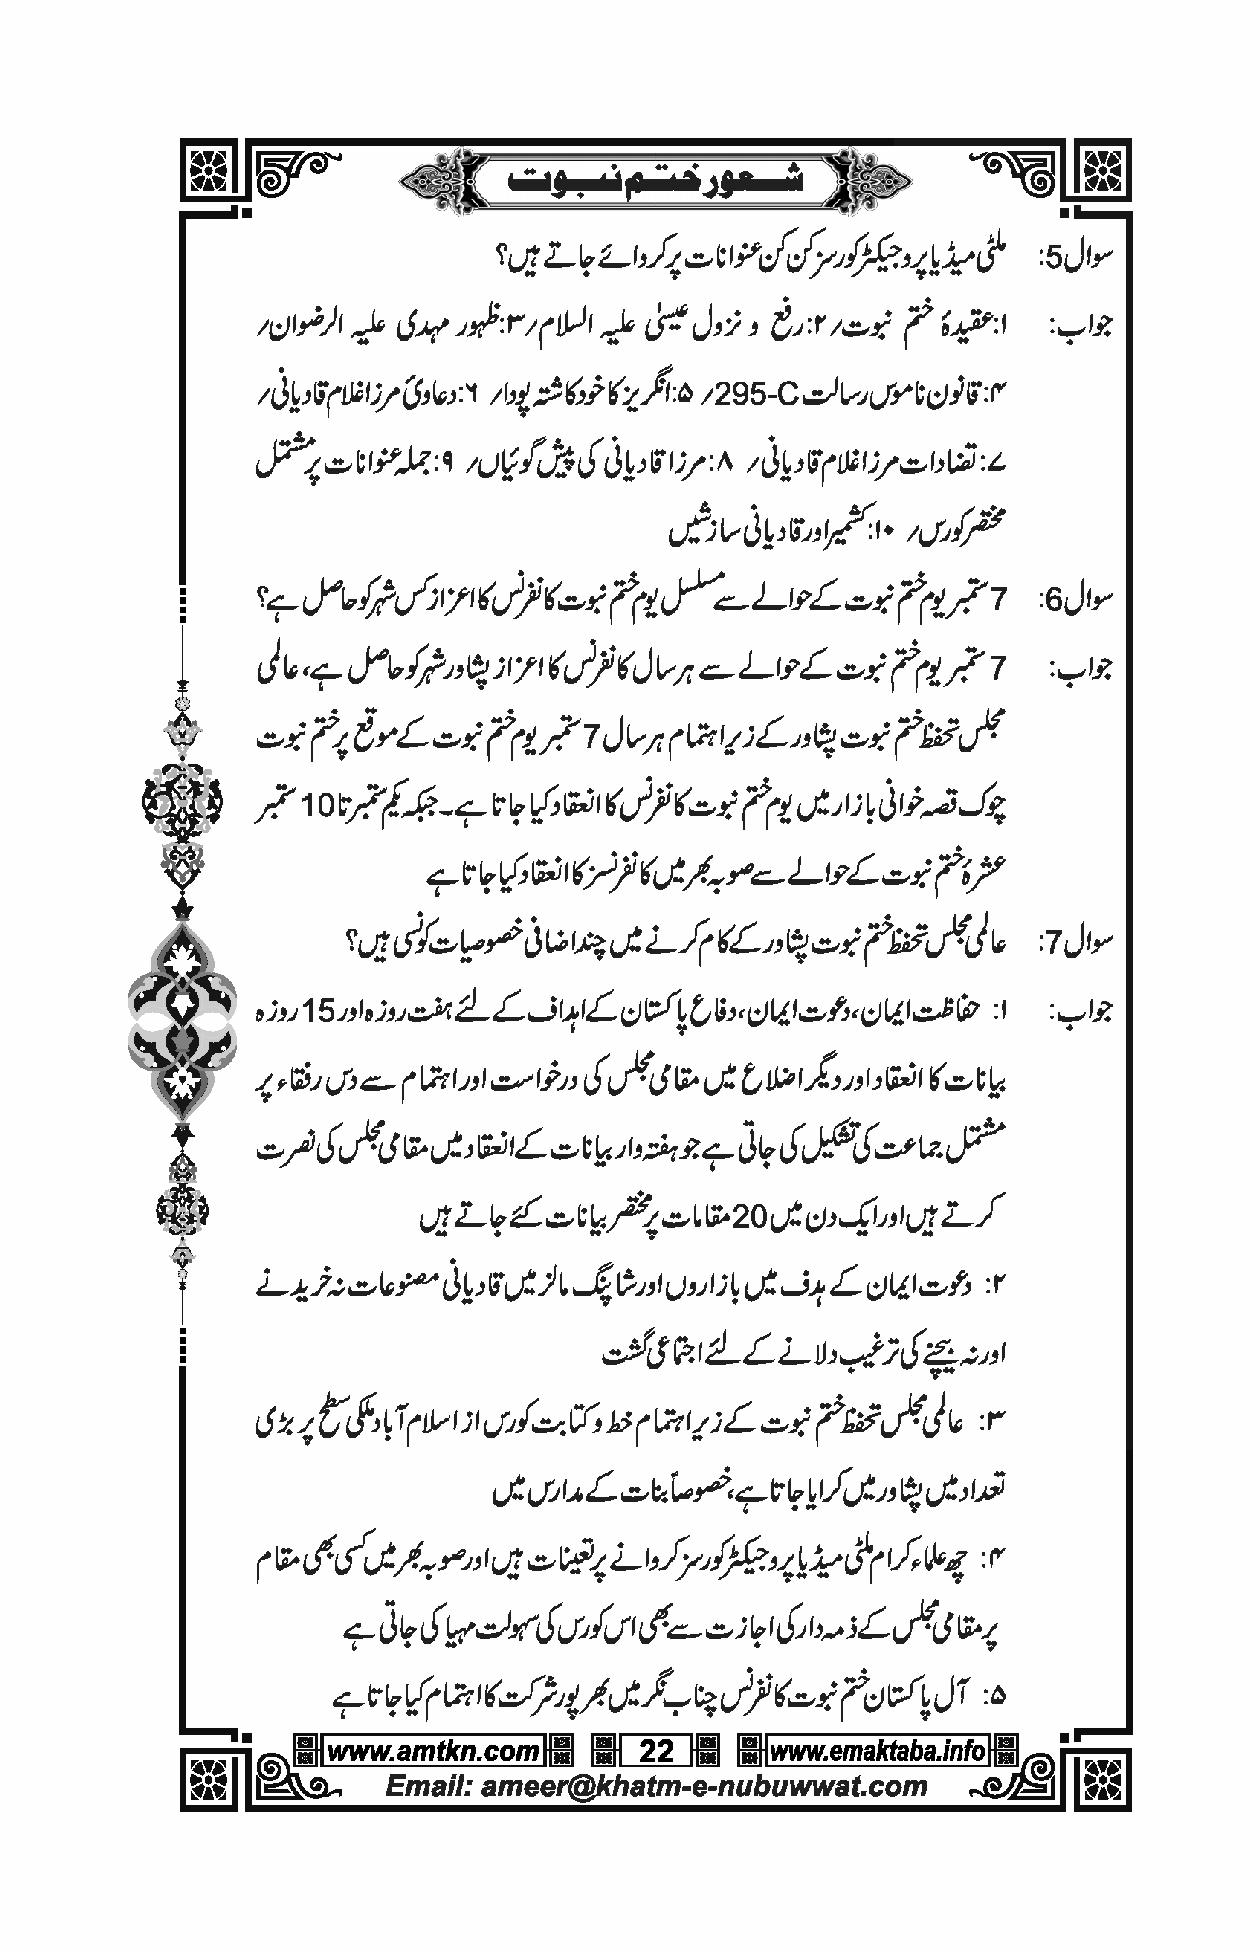 شعور ختم نبوت
سوال5: ملٹی میڈیا پروجیکٹر کورسز کن کن عنوانات پر کروائے جاتے ہیں؟
جواب: ۱:عقیدۂ ختم نبوت/ ۲:رفع و نزول عیسیٰ علیہ السلام/ ۳:ظہور مہدی علیہ الرضوان/
۴:قانون ناموس رسالت 295-C/ ۵:انگریز کا خود کاشتہ پودا/ ۶:دعاوئ مرزا غلام قادیانی/
۷:تضادات مرزا غلام قادیانی/ ۸:مرزا قادیانی کی پیش گوئیاں/ ۹:جملہ عنوانات پر مشتمل
مختصر کورس/ ۱۰:کشمیر اور قادیانی سازشیں
سوال6: 7 ستمبر یوم ختم نبوت کے حوالے سے مسلسل یوم ختم نبوت کانفرنس کا اعزاز کس شہر کو حاصل ہے؟
جواب: 7 ستمبر یوم ختم نبوت کے حوالے سے ہر سال کانفرنس کا اعزاز پشاور شہر کو حاصل ہے، عالمی
مجلس تحفظ ختم نبوت پشاور کے زیر اہتمام ہر سال 7 ستمبر یوم ختم نبوت کے موقع پر ختم نبوت
چوک قصہ خوانی بازار میں یوم ختم نبوت کانفرنس کا انعقاد کیا جاتا ہے۔ جبکہ یکم ستمبر تا 10 ستمبر
عشرۂ ختم نبوت کے حوالے سے صوبہ بھر میں کانفرنسز کا انعقاد کیا جاتا ہے
سوال7: عالمی مجلس تحفظ ختم نبوت پشاور کے کام کرنے میں چند اضافی خصوصیات کونسی ہیں؟
جواب: ۱: حفاظت ایمان، دعوت ایمان، دفاع پاکستان کے اہداف کے لئے ہفت روزہ اور 15 روزہ
بیانات کا انعقاد اور دیگر اضلاع میں مقامی مجلس کی درخواست اور اہتمام سے دس رفقاء پر
مشتمل جماعت کی تشکیل کی جاتی ہے جو ہفتہ وار بیانات کے انعقاد میں مقامی مجلس کی نصرت
کرتے ہیں اور ایک دن میں 20 مقامات پر مختصر بیانات کئے جاتے ہیں
۲: دعوت ایمان کے ہدف میں بازاروں اور شاپنگ مالز میں قادیانی مصنوعات نہ خریدنے
اور نہ بیچنے کی ترغیب دلانے کے لئے اجتماعی گشت
۳: عالمی مجلس تحفظ ختم نبوت کے زیر اہتمام خط و کتابت کورس از اسلام آباد ملکی سطح پر بڑی
تعداد میں پشاور میں کرایا جاتا ہے، خصوصاً بنات کے مدارس میں
۴: چھ علماء کرام ملٹی میڈیا پروجیکٹر کورسز کروانے پر تعینات ہیں اور صوبہ بھر میں کسی بھی مقام
پر مقامی مجلس کے ذمہ دار کی اجازت سے بھی اس کورس کی سہولت مہیا کی جاتی ہے
۵: آل پاکستان ختم نبوت کانفرنس چناب نگر میں بھر پور شرکت کا اہتمام کیا جاتا ہے
www.amtkn.com 22 www.emaktaba.info
Email: ameer@khatm-e-nubuwwat.com